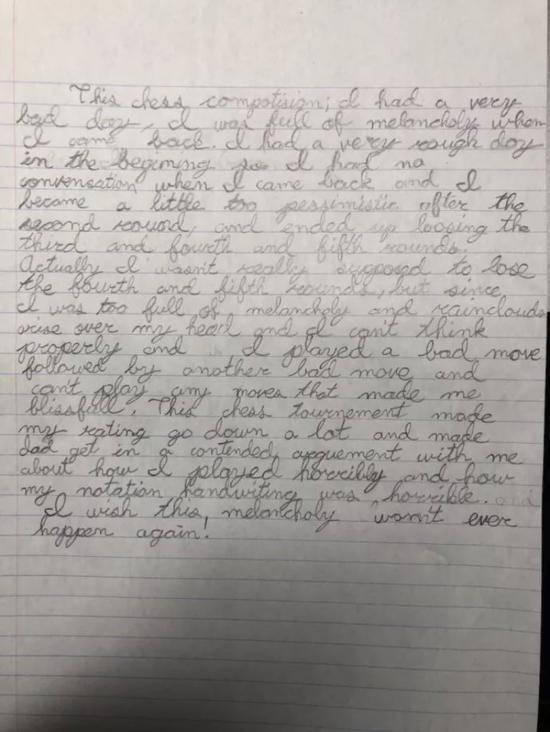 This chess compotision; I had a very
bad day, I was full of melancholy when
I came back. I had a very rough day
in the beginning so I had no
convensation when I came back and I
became a little too pessimistic after the
second round, and ended up loosing the
third and fourth and fifth rounds.
Actually I wasn't really supposed to lose
the fourth and fifth rounds, but since
I was too full of melancholy and rainclouds
arise over my head and I can't think
properly and I played a bad move
followed by another bad move and
can't play any moves that made me
blissfull. This chess tournement made
my rating go down a lot and made
dad get in a contended arguement with me
about how I played horribly and how
my notation handwriting was horrible.
I wish this melancholy won't ever
happen again!